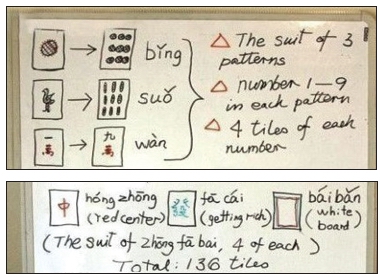 bǐng
suǒ
一萬 九萬 wàn
The suit of 3
patterns
number 1–9
in each pattern
4 tiles of each
number
中 hóng zhōng
(red center)
發 fā cái
(getting rich)
bái bǎn
(white
board)
(The suit of zhōng fā bai, 4 of each)
Total: 136 tiles